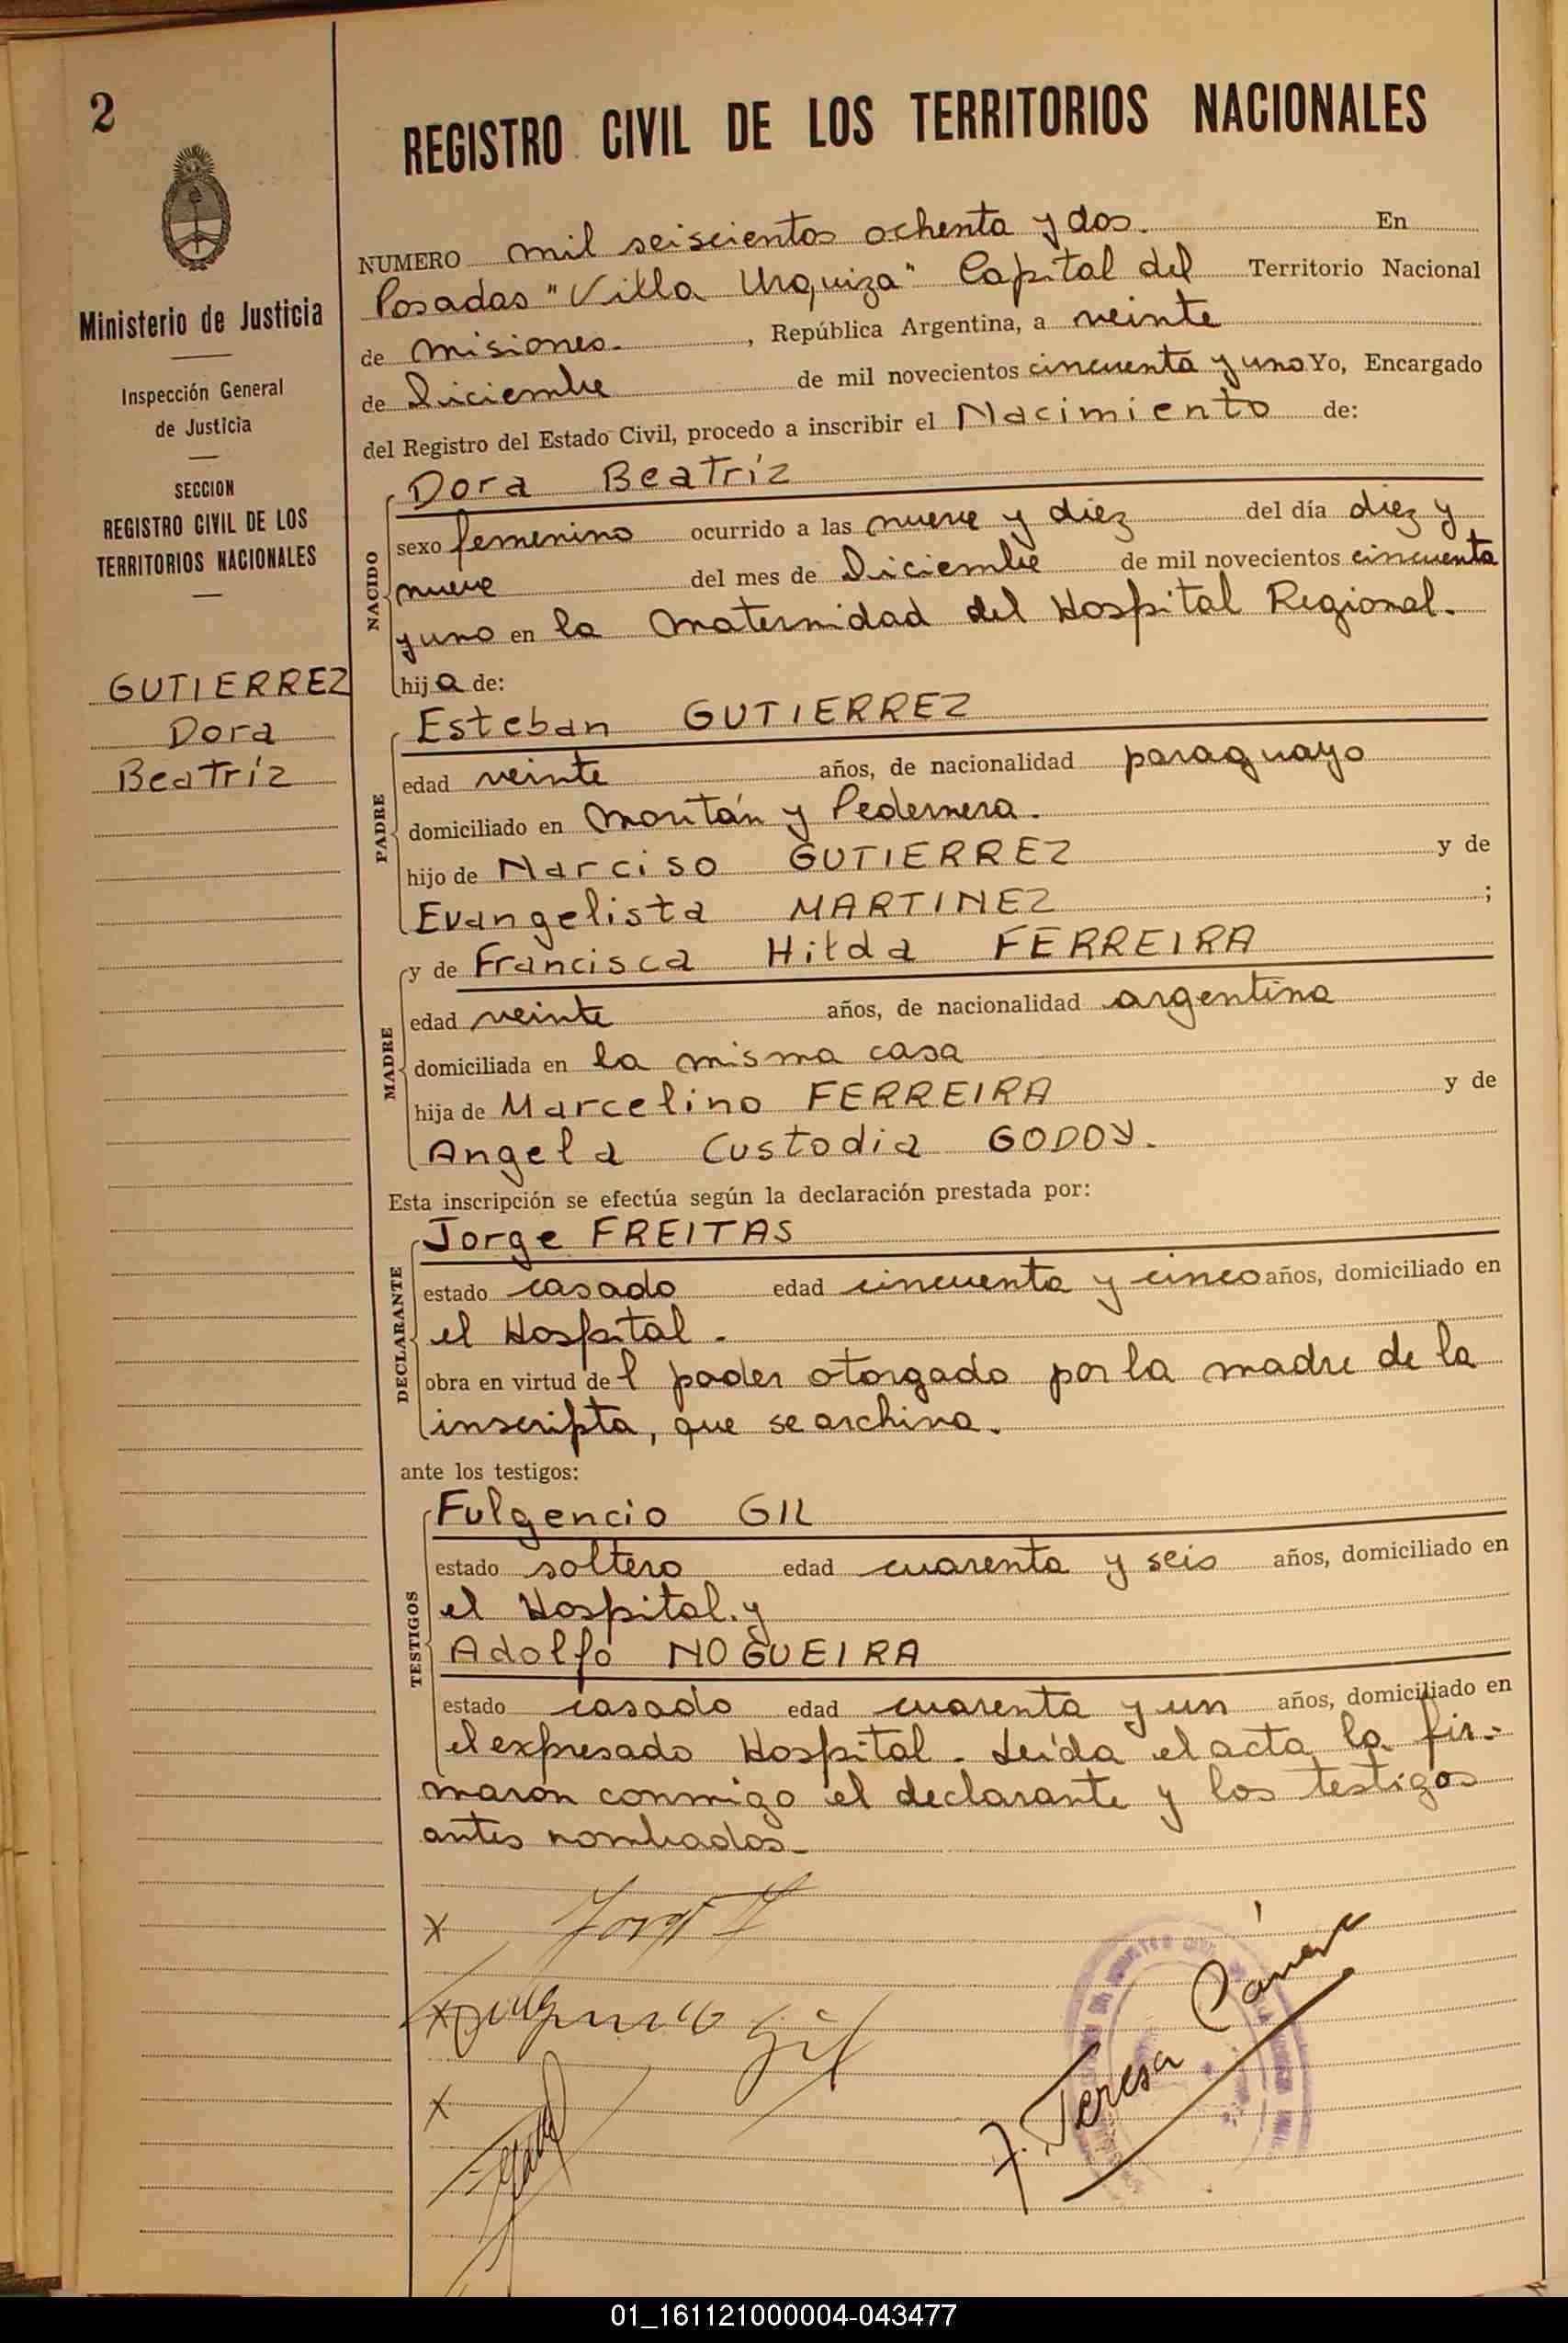 2
REGISTRO CIVIL DE LOS TERRITORIOS NACIONALES
Ministerio de Justicia
Inspección General
de Justicia
SECCION
REGISTRO CIVIL DE LOS
TERRITORIOS NACIONALES
GUTIERREZ
Dora
Beatríz
NUMERO mil seiscientos ochenta y dos. En
Posadas "Villa Urquiza" Capital del Territorio Nacional
de Misiones. , República Argentina, a veinte
de Diciembre de mil novecientos cincuenta y uno Yo, Encargado
del Registro del Estado Civil, procedo a inscribir el Nacimiento de:
NACIDO
Dora Beatríz
sexo femenino ocurrido a las nueve y diez del día diez y
nueve del mes de Diciembre de mil novecientos cincuenta
y uno en la Maternidad del Hospital Regional.
hija de:
PADRE
Esteban GUTIERREZ
edad veinte años, de nacionalidad paraguayo
domiciliado en Moritán y Pedernera.
hijo de Narciso GUTIERREZ y de
Evangelista MARTINEZ ;
MADRE
y de Francisca Hilda FERREIRA
edad veinte años, de nacionalidad argentina
domiciliada en la misma casa
hija de Marcelino FERREIRA y de
Angela Custodia GODOY.
Esta inscripción se efectúa según la declaración prestada por:
DECLARANTE
Jorge FREITAS
estado casado edad cincuenta y cinco años, domiciliado en
el Hospital.
obra en virtud del poder otorgado por la madre de la
inscripta, que se archiva.
ante los testigos:
TESTIGOS
Fulgencio GIL
estado soltero edad cuarenta y seis años, domiciliado en
el Hospital. y
Adolfo NOGUEIRA
estado casado edad cuarenta y un años, domiciliado en
el expresado Hospital. Leída el acta la fir-
maron conmigo el declarante y los testigos
antes nombrados.
x Jorge F
x Fulgencio Gil
x
F. Teresa Cámara
01_161121000004-043477